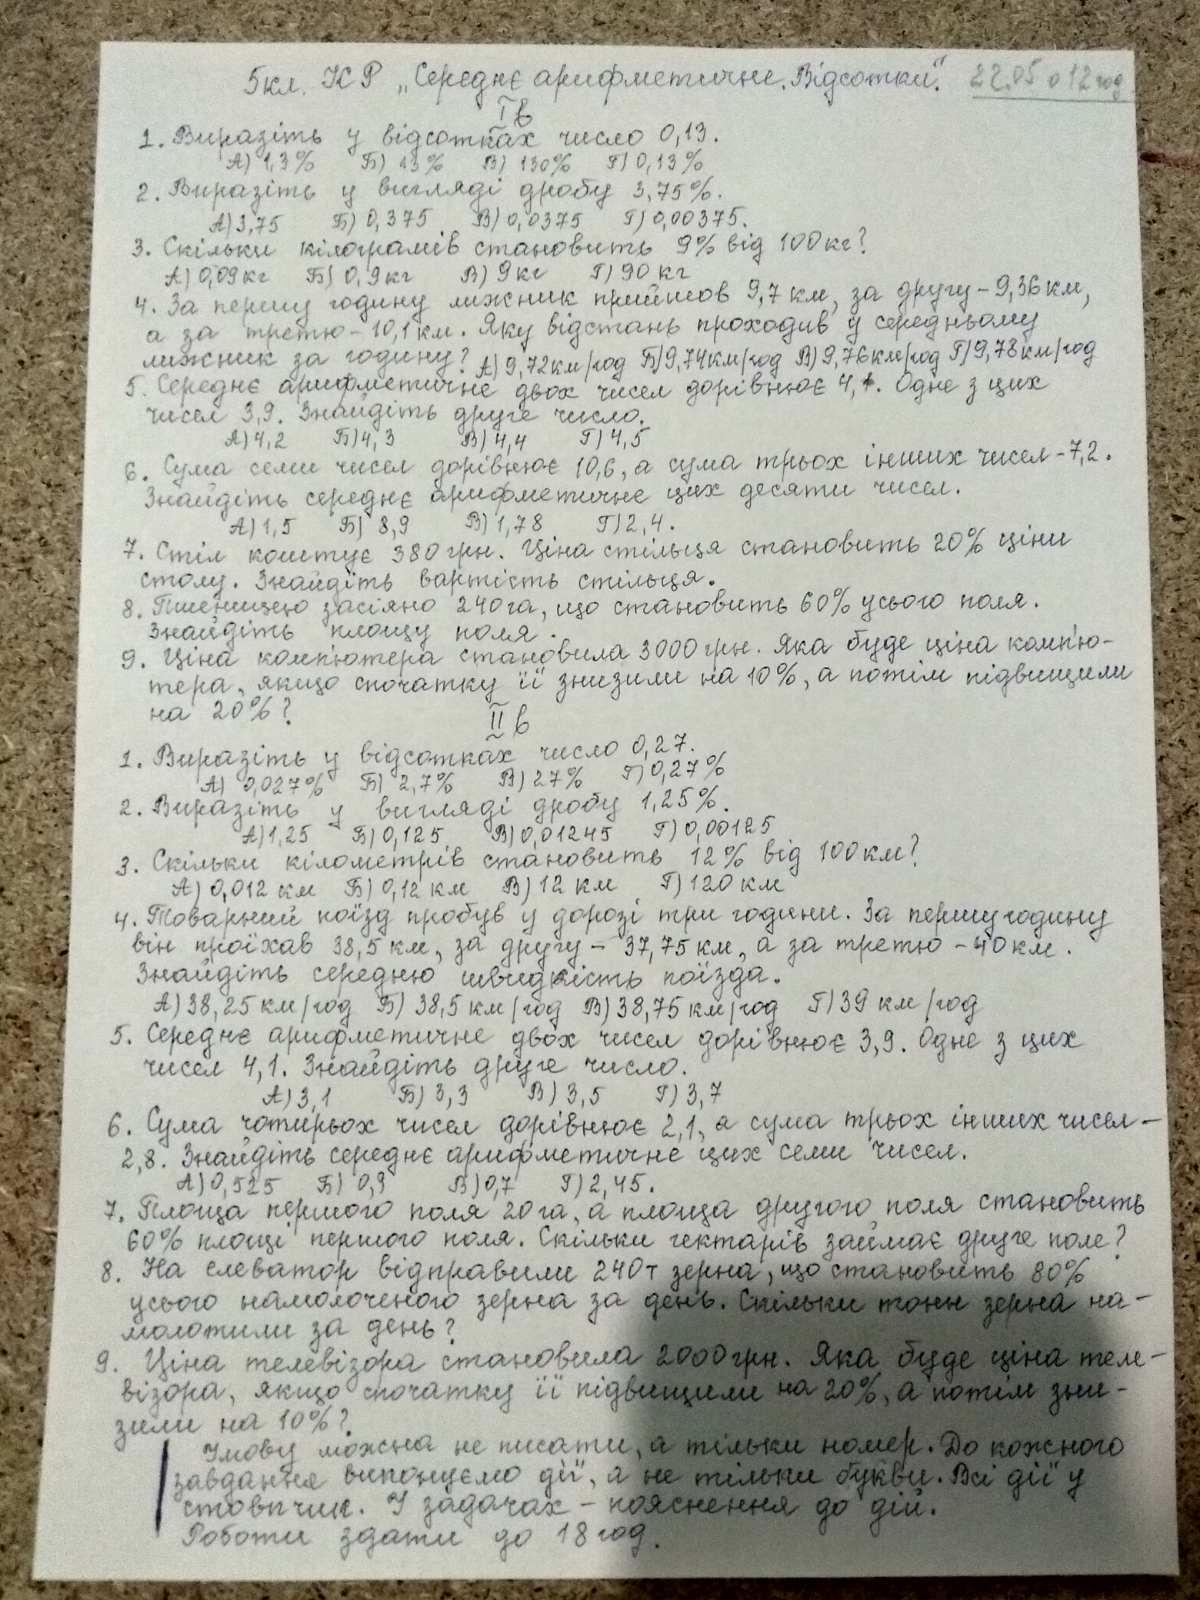 5кл. КР „Середнє арифметичне. Відсотки". 22.05 о 12 год
I в
1. Виразіть у відсотках число 0,13.
А) 1,3% Б) 13% В) 130% Г) 0,13%
2. Виразіть у вигляді дробу 3,75%.
А) 3,75 Б) 0,375 В) 0,0375 Г) 0,00375.
3. Скільки кілограмів становить 9% від 100кг?
А) 0,09кг Б) 0,9кг В) 9кг Г) 90 кг
4. За першу годину лижник пройшов 9,7 км, за другу – 9,36км,
а за третю – 10,1 км. Яку відстань проходив у середньому
лижник за годину? А) 9,72км/год Б) 9,74км/год В) 9,76км/год Г) 9,78км/год
5. Середнє арифметичне двох чисел дорівнює 4,1. Одне з цих
чисел 3,9. Знайдіть друге число.
А) 4,2 Б) 4,3 В) 4,4 Г) 4,5
6. Сума семи чисел дорівнює 10,6, а сума трьох інших чисел – 7,2.
Знайдіть середнє арифметичне цих десяти чисел.
А) 1,5 Б) 8,9 В) 1,78 Г) 2,4.
7. Стіл коштує 380грн. Ціна стільця становить 20% ціни
столу. Знайдіть вартість стільця.
8. Пшеницею засіяно 240га, що становить 60% усього поля.
Знайдіть площу поля.
9. Ціна комп'ютера становила 3000грн. Яка буде ціна комп'ю-
тера, якщо спочатку її знизили на 10%, а потім підвищили
на 20%?
II в
1. Виразіть у відсотках число 0,27.
А) 0,027% Б) 2,7% В) 27% Г) 0,27%
2. Виразіть у вигляді дробу 1,25%.
А) 1,25 Б) 0,125 В) 0,01245 Г) 0,00125
3. Скільки кілометрів становить 12% від 100км?
А) 0,012 км Б) 0,12 км В) 12 км Г) 120 км
4. Товарний поїзд пробув у дорозі три години. За першу годину
він проїхав 38,5 км, за другу – 37,75 км, а за третю – 40 км.
Знайдіть середню швидкість поїзда.
А) 38,25 км/год Б) 38,5 км/год В) 38,75 км/год Г) 39 км/год
5. Середнє арифметичне двох чисел дорівнює 3,9. Одне з цих
чисел 4,1. Знайдіть друге число.
А) 3,1 Б) 3,3 В) 3,5 Г) 3,7
6. Сума чотирьох чисел дорівнює 2,1, а сума трьох інших чисел –
2,8. Знайдіть середнє арифметичне цих семи чисел.
А) 0,525 Б) 0,9 В) 0,7 Г) 2,45.
7. Площа першого поля 20га, а площа другого поля становить
60% площі першого поля. Скільки гектарів займає друге поле?
8. На елеватор відправили 240т зерна, що становить 80%
усього намолоченого зерна за день. Скільки тонн зерна на-
молотили за день?
9. Ціна телевізора становила 2000грн. Яка буде ціна теле-
візора, якщо спочатку її підвищили на 20%, а потім зни-
зили на 10%?
Умову можна не писати, а тільки номер. До кожного
завдання виконуємо дії, а не тільки букви. Всі дії у
стовпчик. У задачах – пояснення до дій.
Роботи здати до 18 год.